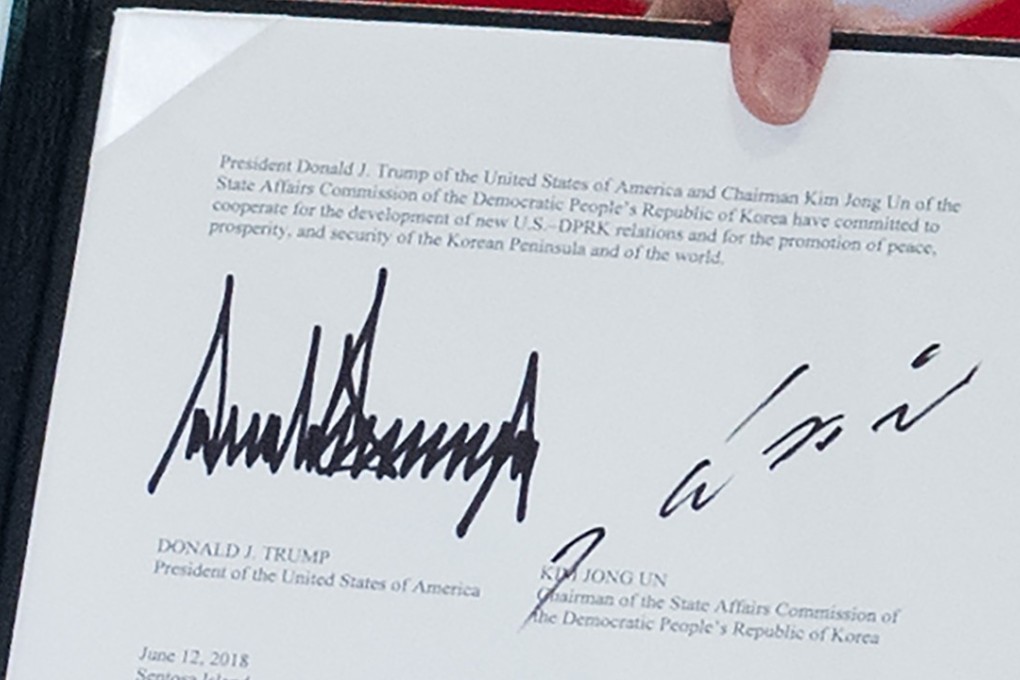 President Donald J. Trump of the United States of America and Chairman Kim Jong Un of the
State Affairs Commission of the Democratic People's Republic of Korea have committed to
cooperate for the development of new U.S.–DPRK relations and for the promotion of peace,
prosperity, and security of the Korean Peninsula and of the world.
DONALD J. TRUMP
President of the United States of America
KIM JONG UN
Chairman of the State Affairs Commission of
the Democratic People's Republic of Korea
June 12, 2018
Sentosa Island